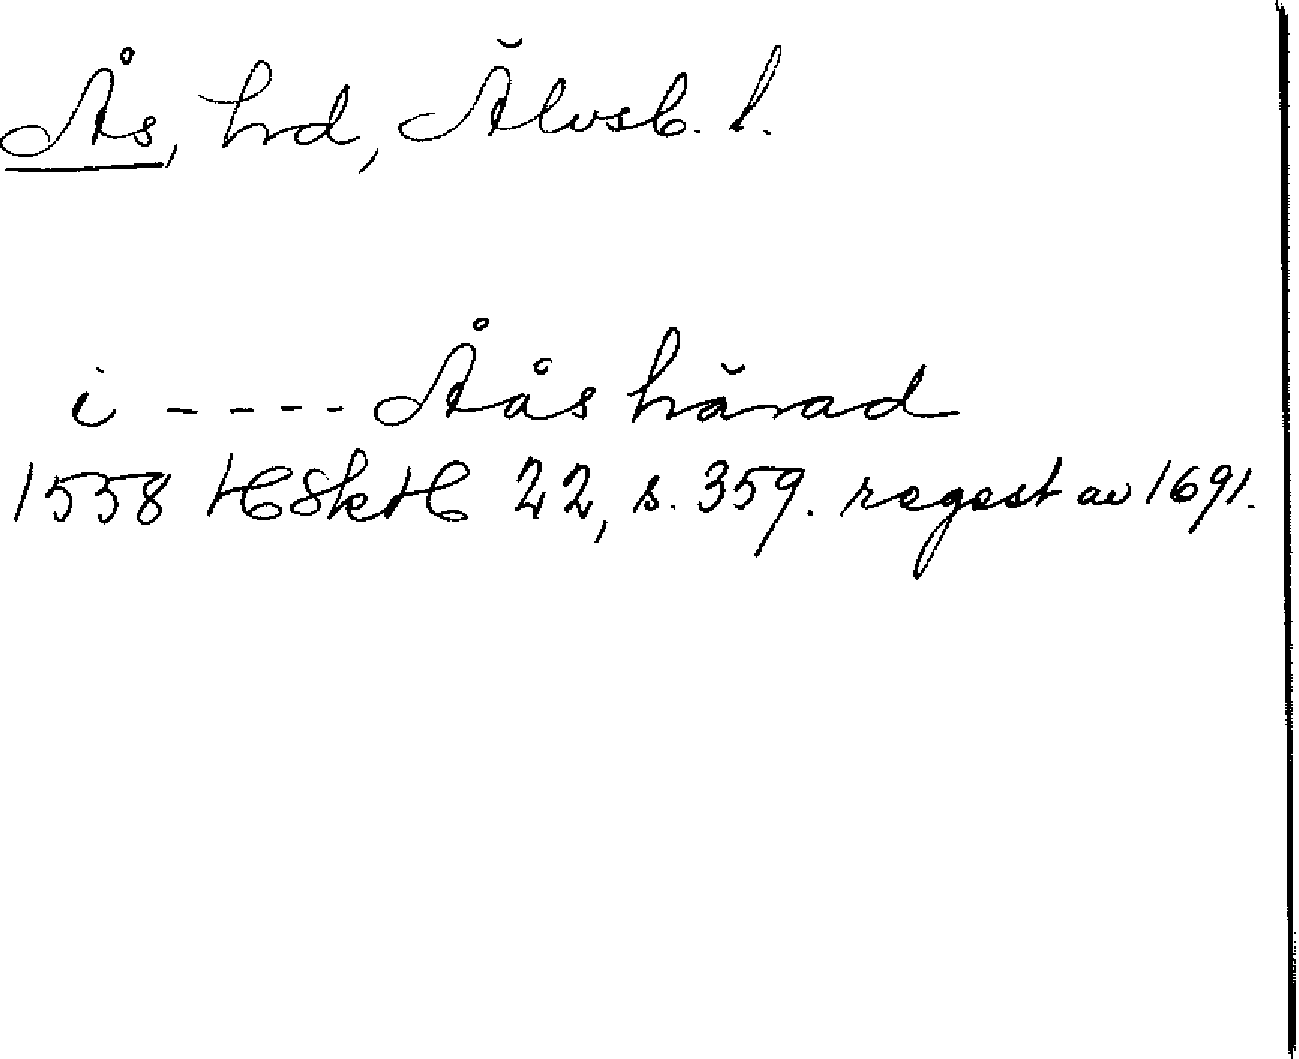 Ås, hd, Älvsb. l.
i ---- Åås härad
1558 HSkH 22, s. 359. regest av 1691.